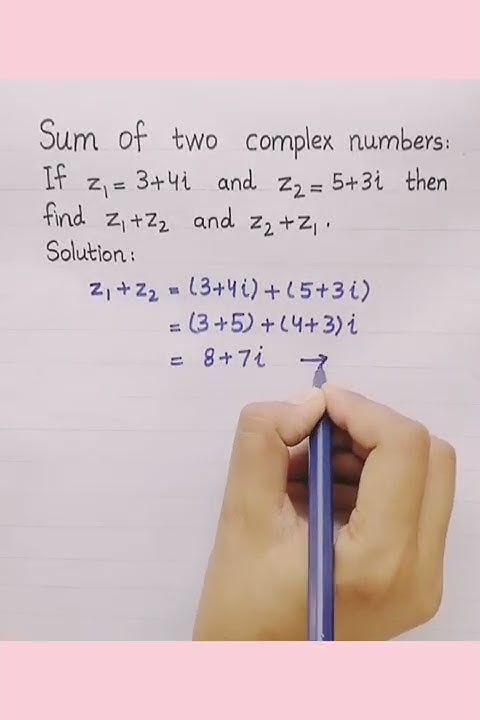 Sum of two complex numbers:
If z₁ = 3+4i and z₂ = 5+3i then
find z₁+z₂ and z₂+z₁.
Solution:
z₁+z₂ = (3+4i)+(5+3i)
= (3+5)+(4+3)i
= 8+7i →